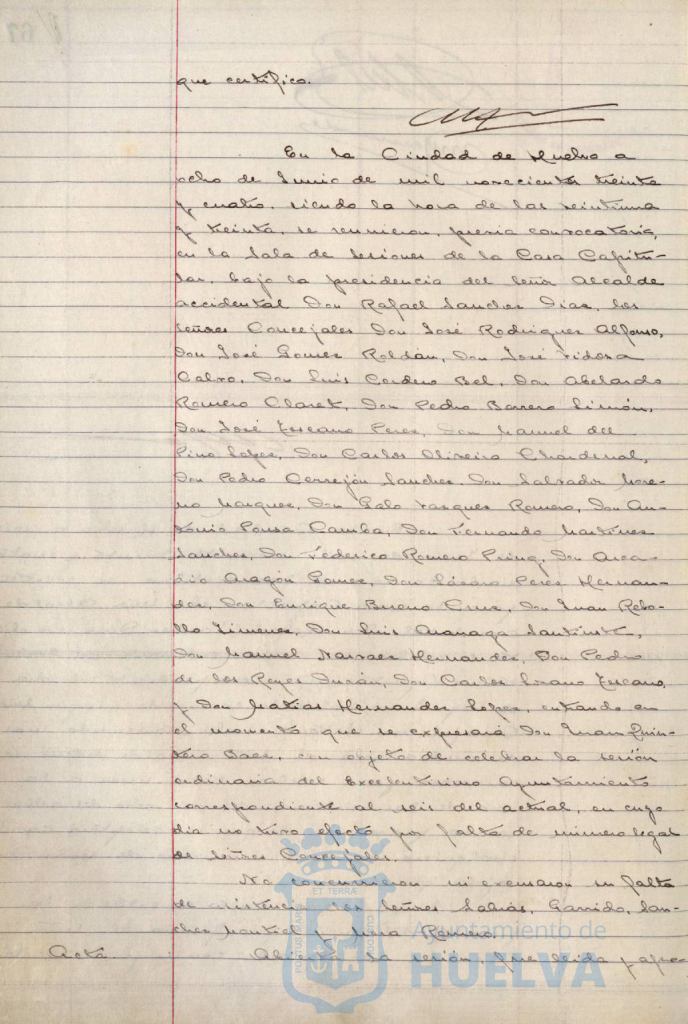 que certifico.
En la Ciudad de Huelva a
ocho de Junio de mil novecientos treinta
y cuatro, siendo la hora de las veintiuna
y treinta, se reunieron, previa convocatoria,
en la Sala de sesiones de la Casa Capitu-
lar, bajo la presidencia del Señor Alcalde
accidental Don Rafael Sanchez Diaz, los
Señores Concejales Don José Rodriguez Alfonso,
Don José Gomez Roldán, Don José
Calvo, Don Luis Cordero Bel, Don Abelardo
Romero Claret, Don Pedro Borrero Limón,
Don José Toscano Perez, Don Manuel del
Pino Lopez, Don Carlos Oliveira Chardenal,
Don Pedro Cerrejón Sanchez, Don Salvador More-
no Marquez, Don Galo Vazquez Romero, Don An-
tonio Pousa Camba, Don Fernando Martinez
Sanchez, Don Federico Romero, Don Arca-
dio Aragón Gomez, Don Lázaro Perez Hernan-
dez, Don Enrique Bueno Cruz, Don Juan Rebo-
llo Jimenez, Don Luis
Don Manuel Narvaez Hernandez, Don Pedro
de los Reyes Durán, Don Carlos Lozano Toscano,
y Don Matias Hernandez Lopez, entrando en
el momento que se expresará Don Juan Quin-
tero Baez, con objeto de celebrar la sesión
ordinaria del Excelentisimo Ayuntamiento
correspondiente al seis del actual, en cuyo
dia no tuvo efecto por falta de número legal
de Señores Concejales.
No concurrieron ni excusaron su falta
de asistencia los Señores Sabrás, Garrido, San-
chez y Romero.
Acta. Abierta la sesión fue leida y apro-
Ayuntamiento de
HUELVA